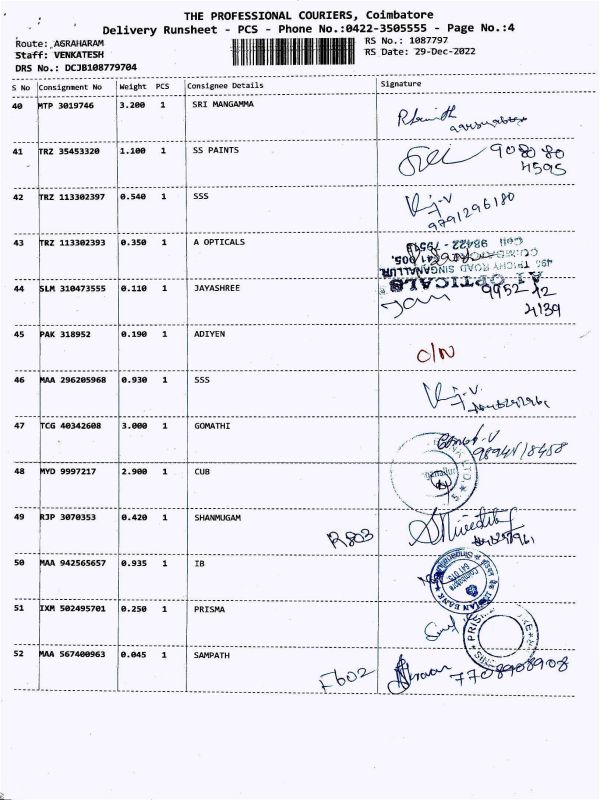 THE PROFESSIONAL COURIERS, Coimbatore
Delivery Runsheet - PCS - Phone No.:0422-3505555 - Page No.:4
Route: AGRAHARAM
RS No.: 1087797
Staff: VENKATESH
RS Date: 29-Dec-2022
DRS No.: DCJB108779704
S No Consignment No Weight PCS Consignee Details Signature
40 MTP 3019746 3.200 1 SRI MANGAMMA
41 TRZ 35453320 1.100 1 SS PAINTS 908080
4595
42 TRZ 113302397 0.540 1 SSS
9791296180
43 TRZ 113302393 0.350 1 A OPTICALS
A1 OPTICALS
TRICHY ROAD SINGANALLUR
44 SLM 310473555 0.110 1 JAYASHREE 9952 12
4139
45 PAK 318952 0.190 1 ADIYEN O/N
46 MAA 296205968 0.930 1 SSS
47 TCG 40342608 3.000 1 GOMATHI
48 MYD 9997217 2.900 1 CUB
49 RJP 3070353 0.420 1 SHANMUGAM R803
50 MAA 942565657 0.935 1 IB
INDIAN BANK
51 IXM 502495701 0.250 1 PRISMA
52 MAA 567400963 0.045 1 SAMPATH F602 7708908908